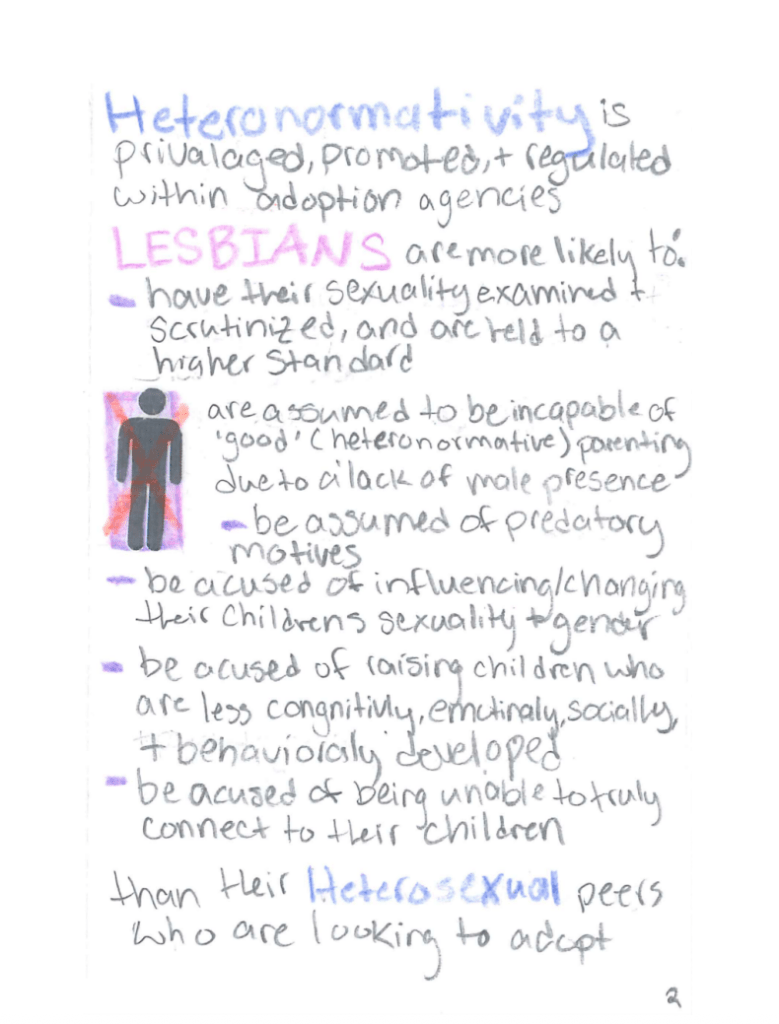 Heteronormativity is
privalaged, promoted, + regulated
within adoption agencies
LESBIANS are more likely to:
- have their sexuality examined +
scrutinized, and are held to a
higher standard
are assumed to be incapable of
'good' (heteronormative) parenting
due to a lack of male presence
- be assumed of predatory
motives
- be acused of influencing/changing
their childrens sexuality + gender
- be acused of raising children who
are less congnitivly, emotinaly, socially,
+ behavioraly developed
- be acused of being unable to truly
connect to their children
than their Heterosexual peers
who are looking to adopt
2